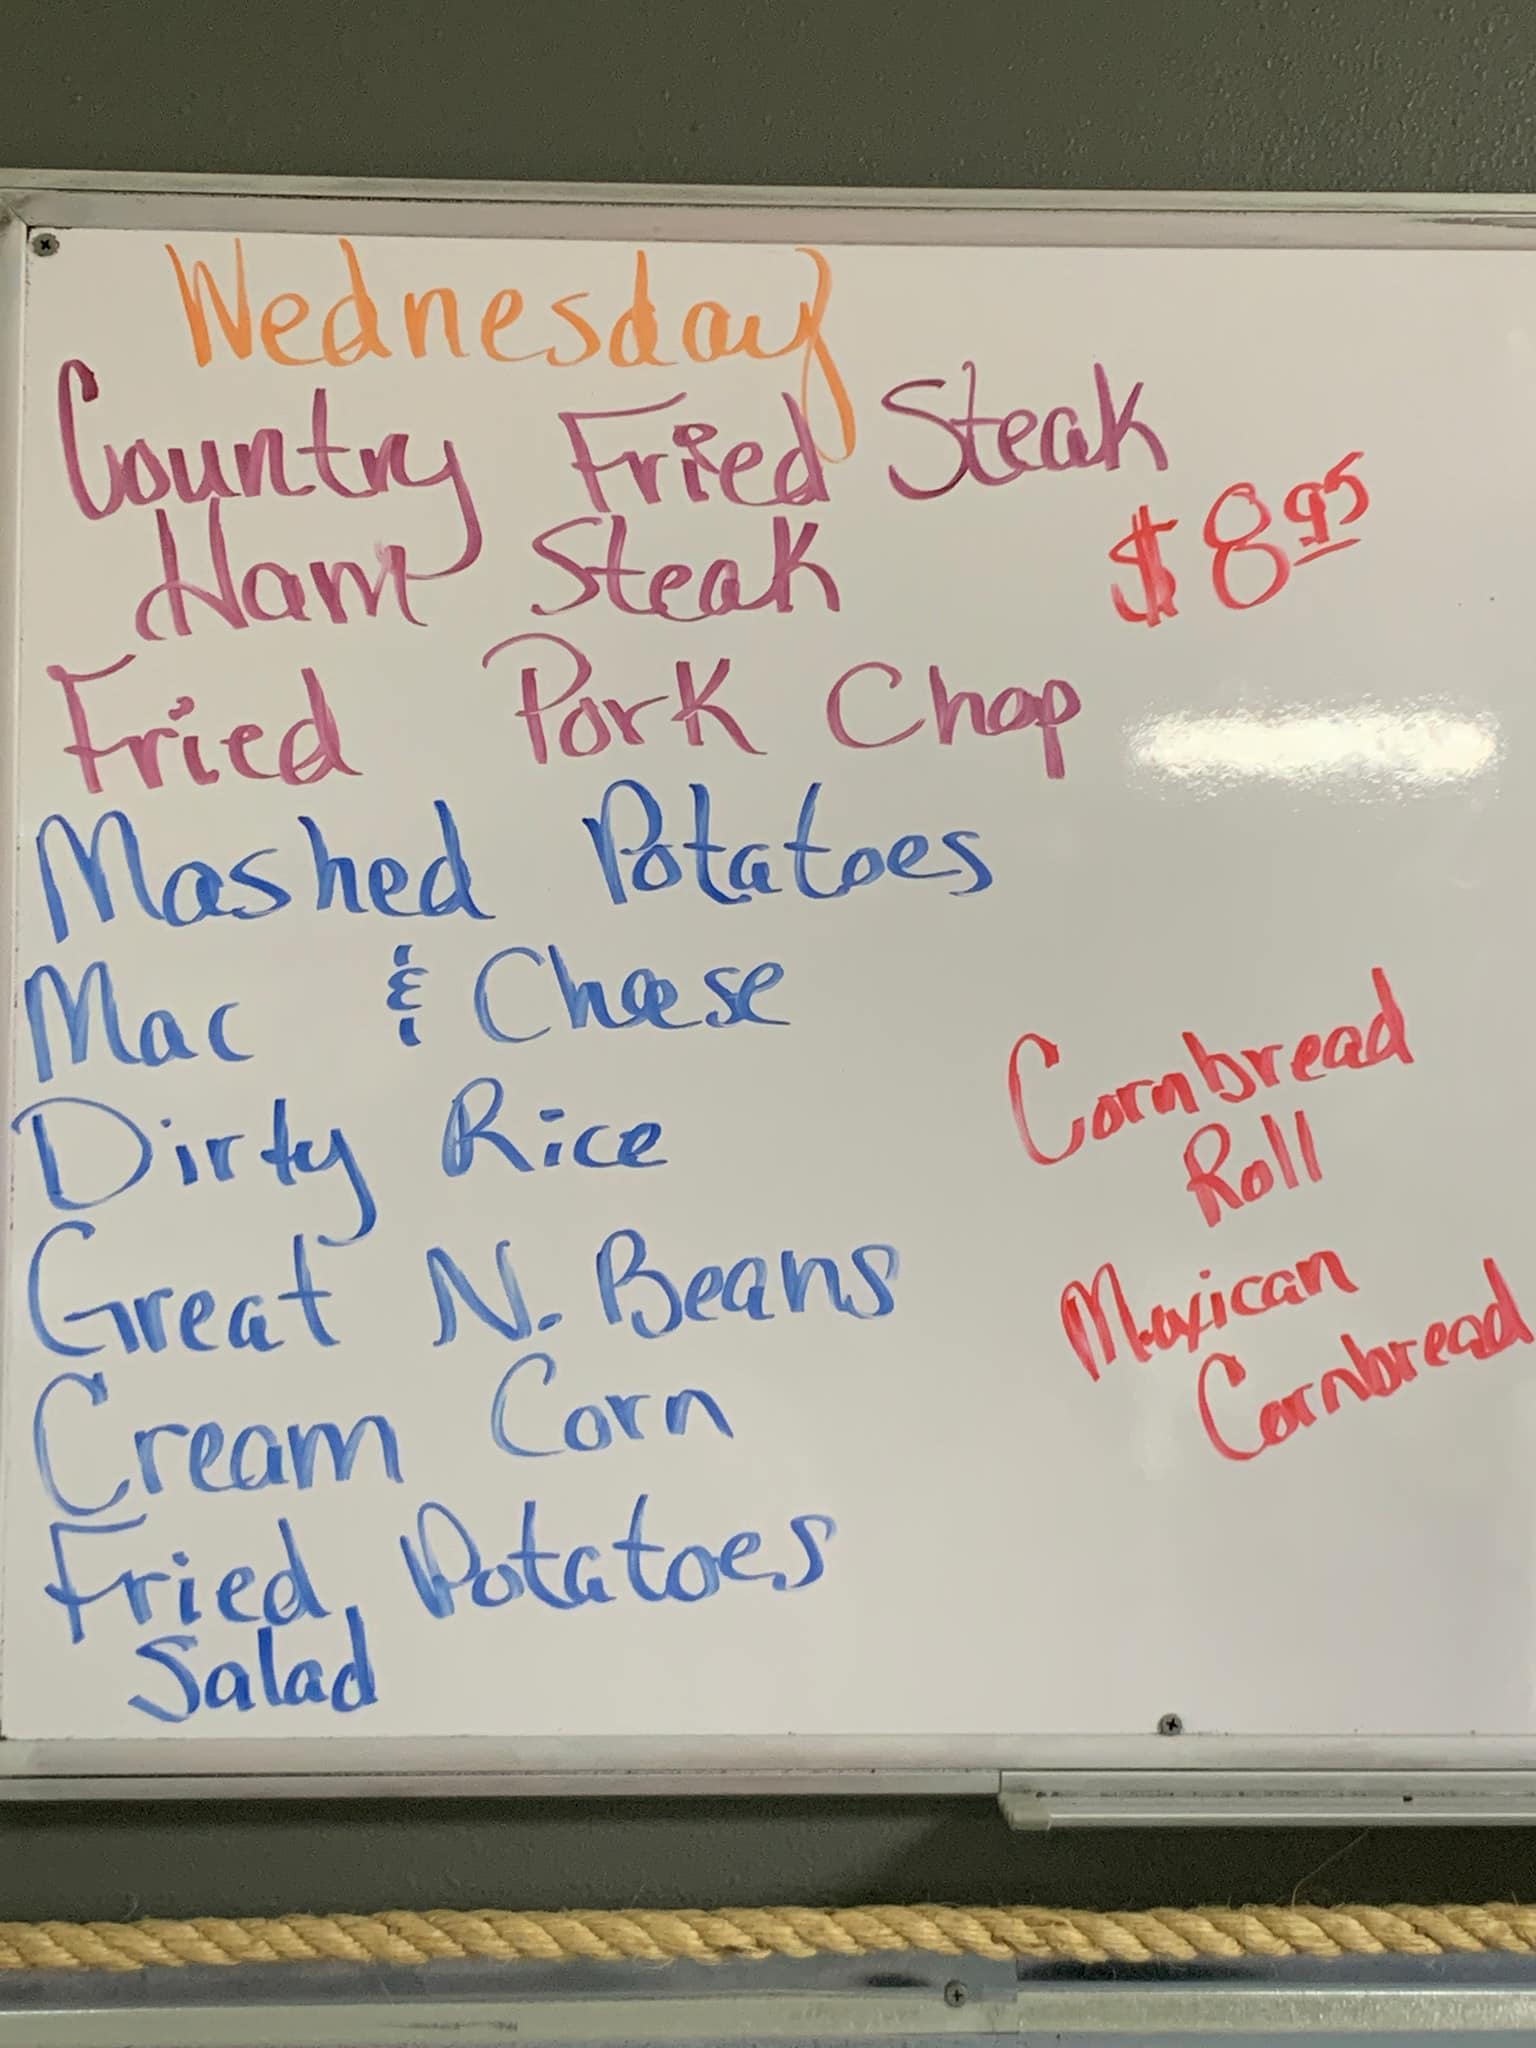 Wednesday
Country Fried Steak
Ham Steak
$8.95
Fried Pork Chop
Mashed Potatoes
Mac & Cheese
Dirty Rice
Great N. Beans
Cream Corn
Fried Potatoes
Salad
Cornbread
Roll
Mexican
Cornbread